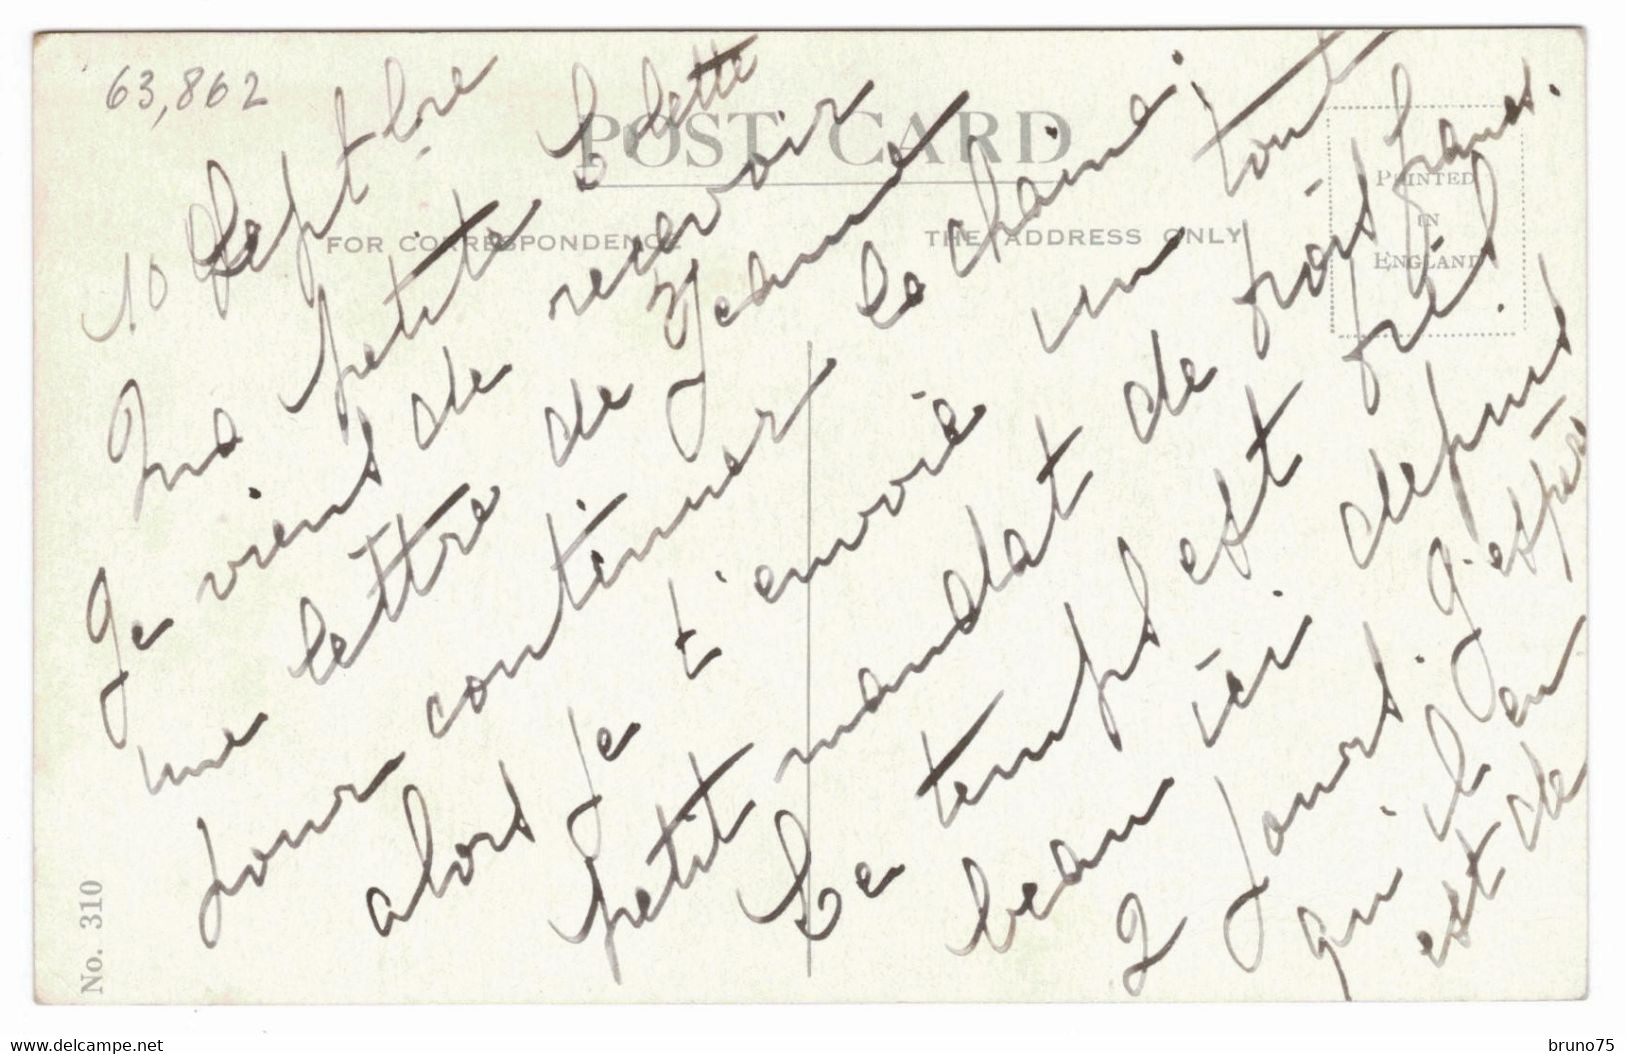 63,862
POST CARD
FOR CORRESPONDENCE
THE ADDRESS ONLY
PRINTED
IN
ENGLAND
No. 310
10 Septbre
Ma petite Colette
Je viens de recevoir
une lettre de Jeanne
pour continuer la chaine;
alors je t'envoie un tout
petit mandat de trois francs.
Le temps est très
beau ici depuis
2 jours. J'espère
qu'il en
est de
www.delcampe.net
bruno75